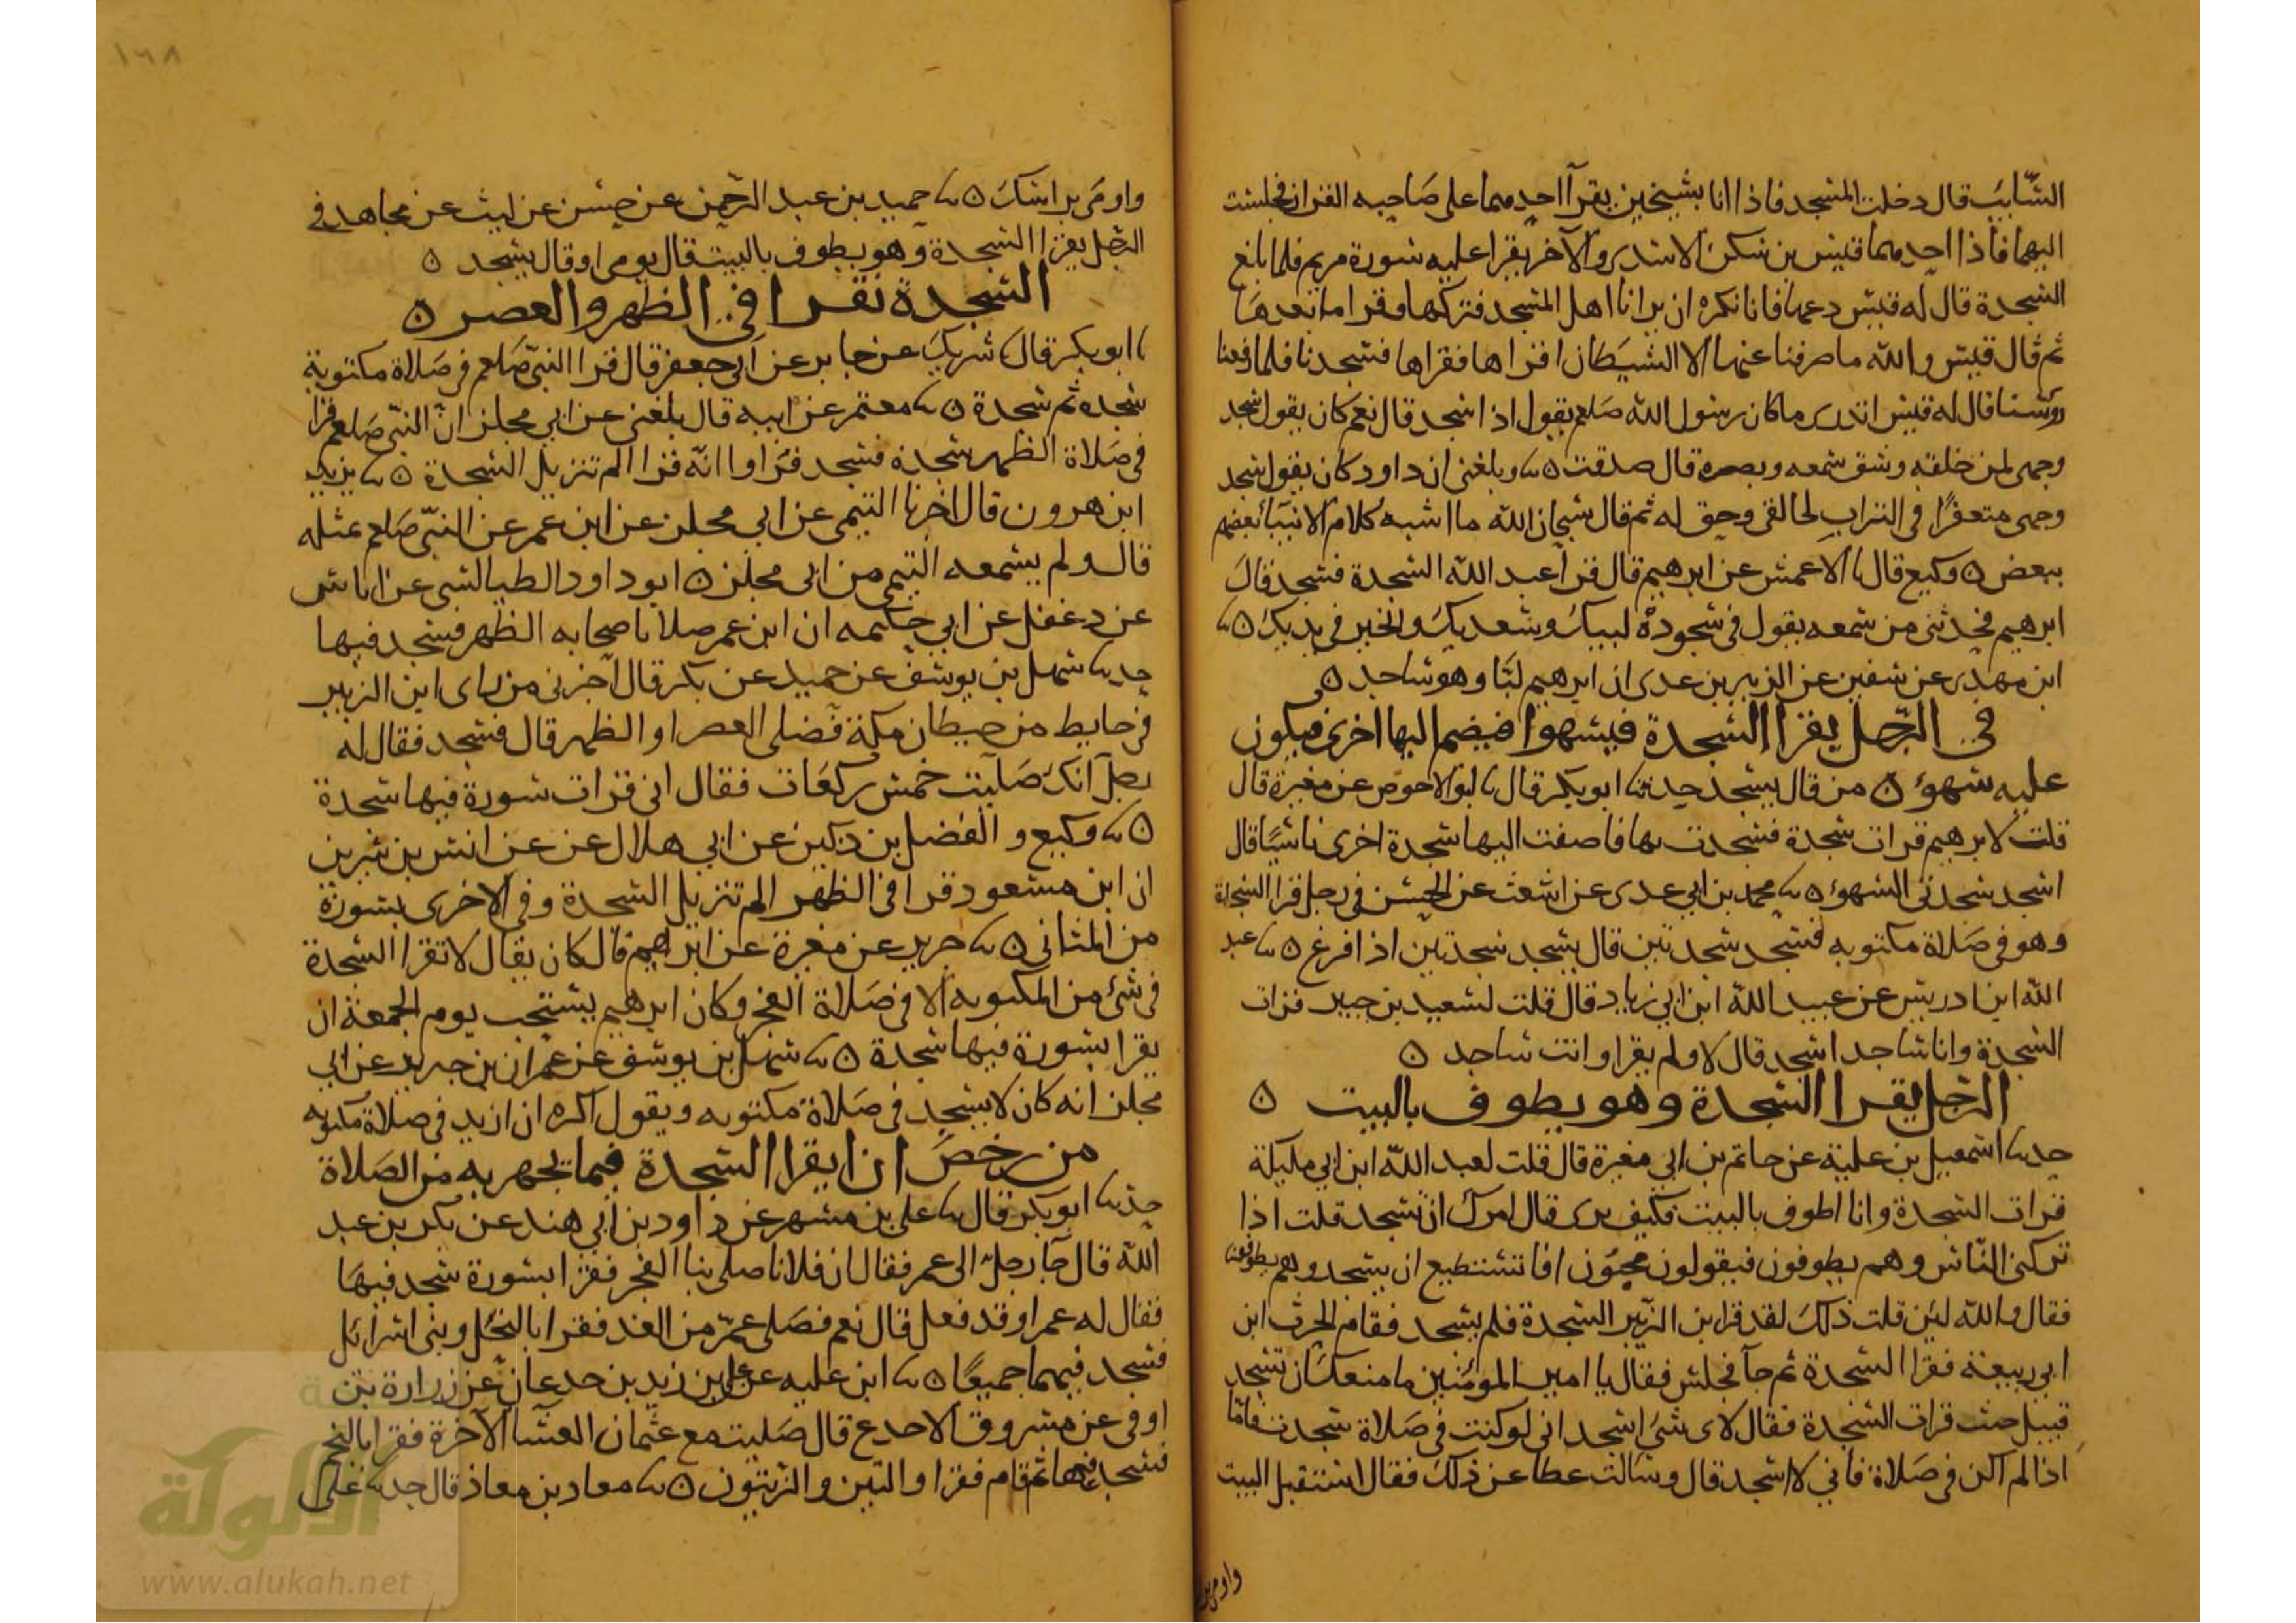 السّايب قال دخلت المسجد فاذا انا بشيخين يقرأ احدهما على صاحبه القران فجلست
اليهما فاذا احدهما قيس بن سكن الاسدي والآخر يقرا عليه سورة مريم فلما بلغ
السجدة قال له قيس دعها فانا نكره ان يرانا اهل المسجد فتركها وقرا ما بعدها
ثم قال قيس والله ما صرفنا عنها الا الشيطان اقراها فقراها فسجدنا فلما رفعنا
روسنا قال له قيس اتدرى ما كان رسول الله صلعم يقول اذا سجد قال نعم كان يقول سجد
وجهى لمن خلقه وشق سمعه وبصره قال صدقت ٥ وبلغنى ان داود كان يقول سجد
وجهى متعفرًا فى التراب لخالقى وحق له ثم قال سبحان الله ما اشبه كلام الانبيا بعضهم
ببعض ٥ وكيع قال نا الاعمش عن ابرهيم قال قرا عبد الله السجدة فسجد قال
ابرهيم فحدثنى من سمعه يقول فى سجوده لبيك وسعديك والخير فى يديك ٥ نا
ابن مهدى عن سفين عن الزبير بن عدى ان ابرهيم لبّا وهو ساجد ٥
فى الرجل يقرا السجدة فيسهوا فيضم اليها اخرى فيكون
عليه سهو ٥ من قال يسجد حدثنا ابو بكر قال نا ابو الاحوص عن مغيرة قال
قلت لابرهيم قرات سجدة فسجدت بها فاضفت اليها سجدة اخرى ناسيًا قال
اسجد سجدتى السهو ٥ نا محمد بن ابي عدى عن اشعث عن الحسن فى رجل قرا السجدة
وهو فى صلاة مكتوبه فسجد سجدتين قال يسجد سجدتين اذا فرغ ٥ نا عبد
الله ابن ادريس عن عبيد الله ابن ابي زياد قال قلت لسعيد بن جبير قرات
السجدة وانا ساجد اسجد قال لا ولم يقرا وانت ساجد ٥
الرجل يقرا السجدة وهو يطوف بالبيت ٥
حدثنا اسمعيل بن علية عن حاتم بن ابي مغيرة قال قلت لعبد الله ابن ابي مليكة
قرات السجدة وانا اطوف بالبيت فكيف يرى قال امرك ان تسجد قلت اذا
تركنى الناس وهم يطوفون فيقولون مجنون افاتستطيع ان يسجد وهم يطوفون
فقال والله لين قلت ذلك لقد قرا ابن الزبير السجدة فلم يسجد فقام الحرث ابن
ابي ربيعة فقرا السجدة ثم جآ فجلس فقال يا امير المومنين ما منعك ان تسجد
قبيل حيث قرات السجدة فقال لاى شى اسجد انى لو كنت فى صلاة سجدت فاما
اذا لم اكن فى صلاة فاني لا اسجد قال وسالت عطا عن ذلك فقال استقبل البيت
واومى
واومى براسك ٥ نا حميد بن عبد الرحمن عن حسن عن ليث عن مجاهد فى
الرجل يقرا السجدة وهو يطوف بالبيت قال يومى او قال يسجد ٥
السجدة تقرا فى الظهر والعصر ٥
نا ابو بكر قال نا شريك عن جابر عن ابى جعفر قال قرا النبى صلعم فى صلاة مكتوبة
سجده ثم سجدة ٥ نا معتمر عن ابيه قال بلغنى عن ابي مجلز ان النبى صلعم قرا
فى صلاة الظهر سجدة فسجد فراوا انه قرا الم تنزيل السجدة ٥ نا يزيد
ابن هرون قال اخبرنا التيمى عن ابي مجلز عن ابن عمر عن النبى صلعم بمثله
قال ولم يسمعه التيمى من ابي مجلز ٥ ابو داود الطيالسي عن اياس
عن دغفل عن ابي حكيمه ان ابن عمر صلا باصحابه الظهر فسجد فيها
حدثنا سهل بن يوسف عن حميد عن بكر قال اخبرنى من راى ابن الزبير
فى حايط من حيطان مكة فصلى العصر او الظهر قال فسجد فقال له
رجل انك صليت خمس ركعات فقال انى قرات سورة فيها سجدة
٥ نا وكيع و الفضل بن دكين عن ابي هلال عن عن انس بن سيرين
ان ابن مسعود قرا فى الظهر الم تنزيل السجدة وفى الاخرى بسورة
من المثانى ٥ نا جرير عن مغيرة عن ابرهيم قال كان يقال لا تقرا السجدة
فى شئ من المكتوبه الا فى صلاة الفجر وكان ابرهيم يستحب يوم الجمعة ان
يقرا بسورة فيها سجدة ٥ نا سهل بن يوسف عن عمران بن جرير عن ابي
مجلز انه كان لا يسجد فى صلاة مكتوبه ويقول اكره ان ازيد فى صلاة مكتوبه
من رخص ان يقرا السجدة فيما يجهر به من الصلاة
حدثنا ابو بكر قال نا على بن مسهر عن داود بن ابي هند عن بكر بن عبد
الله قال جآ رجل الى عمر فقال ان فلانا صلى بنا الفجر فقرا بسورة سجد فيها
فقال له عمر او قد فعل قال نعم فصلى عمر من الغد فقرا بالنحل وبنى اسرائل
فسجد فيهما جميعًا ٥ نا ابن عليه عن على بن زيد بن جدعان عن زرارة بن
اوفى عن مسروق الاجدع قال صليت مع عثمان العشآ الآخرة فقرا بالنجم
فسجد فيها ثم قام فقرا والتين والزيتون ٥ نا معاد بن معاذ قال حدثنا على
١٦٨
الألوكة
www.alukah.net